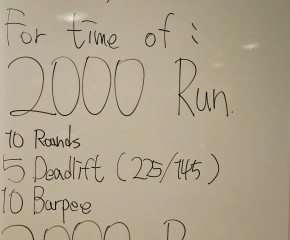 For time of :
2000 Run.
10 Rounds
5 Deadlift (225/145)
10 Burpee
2000 R